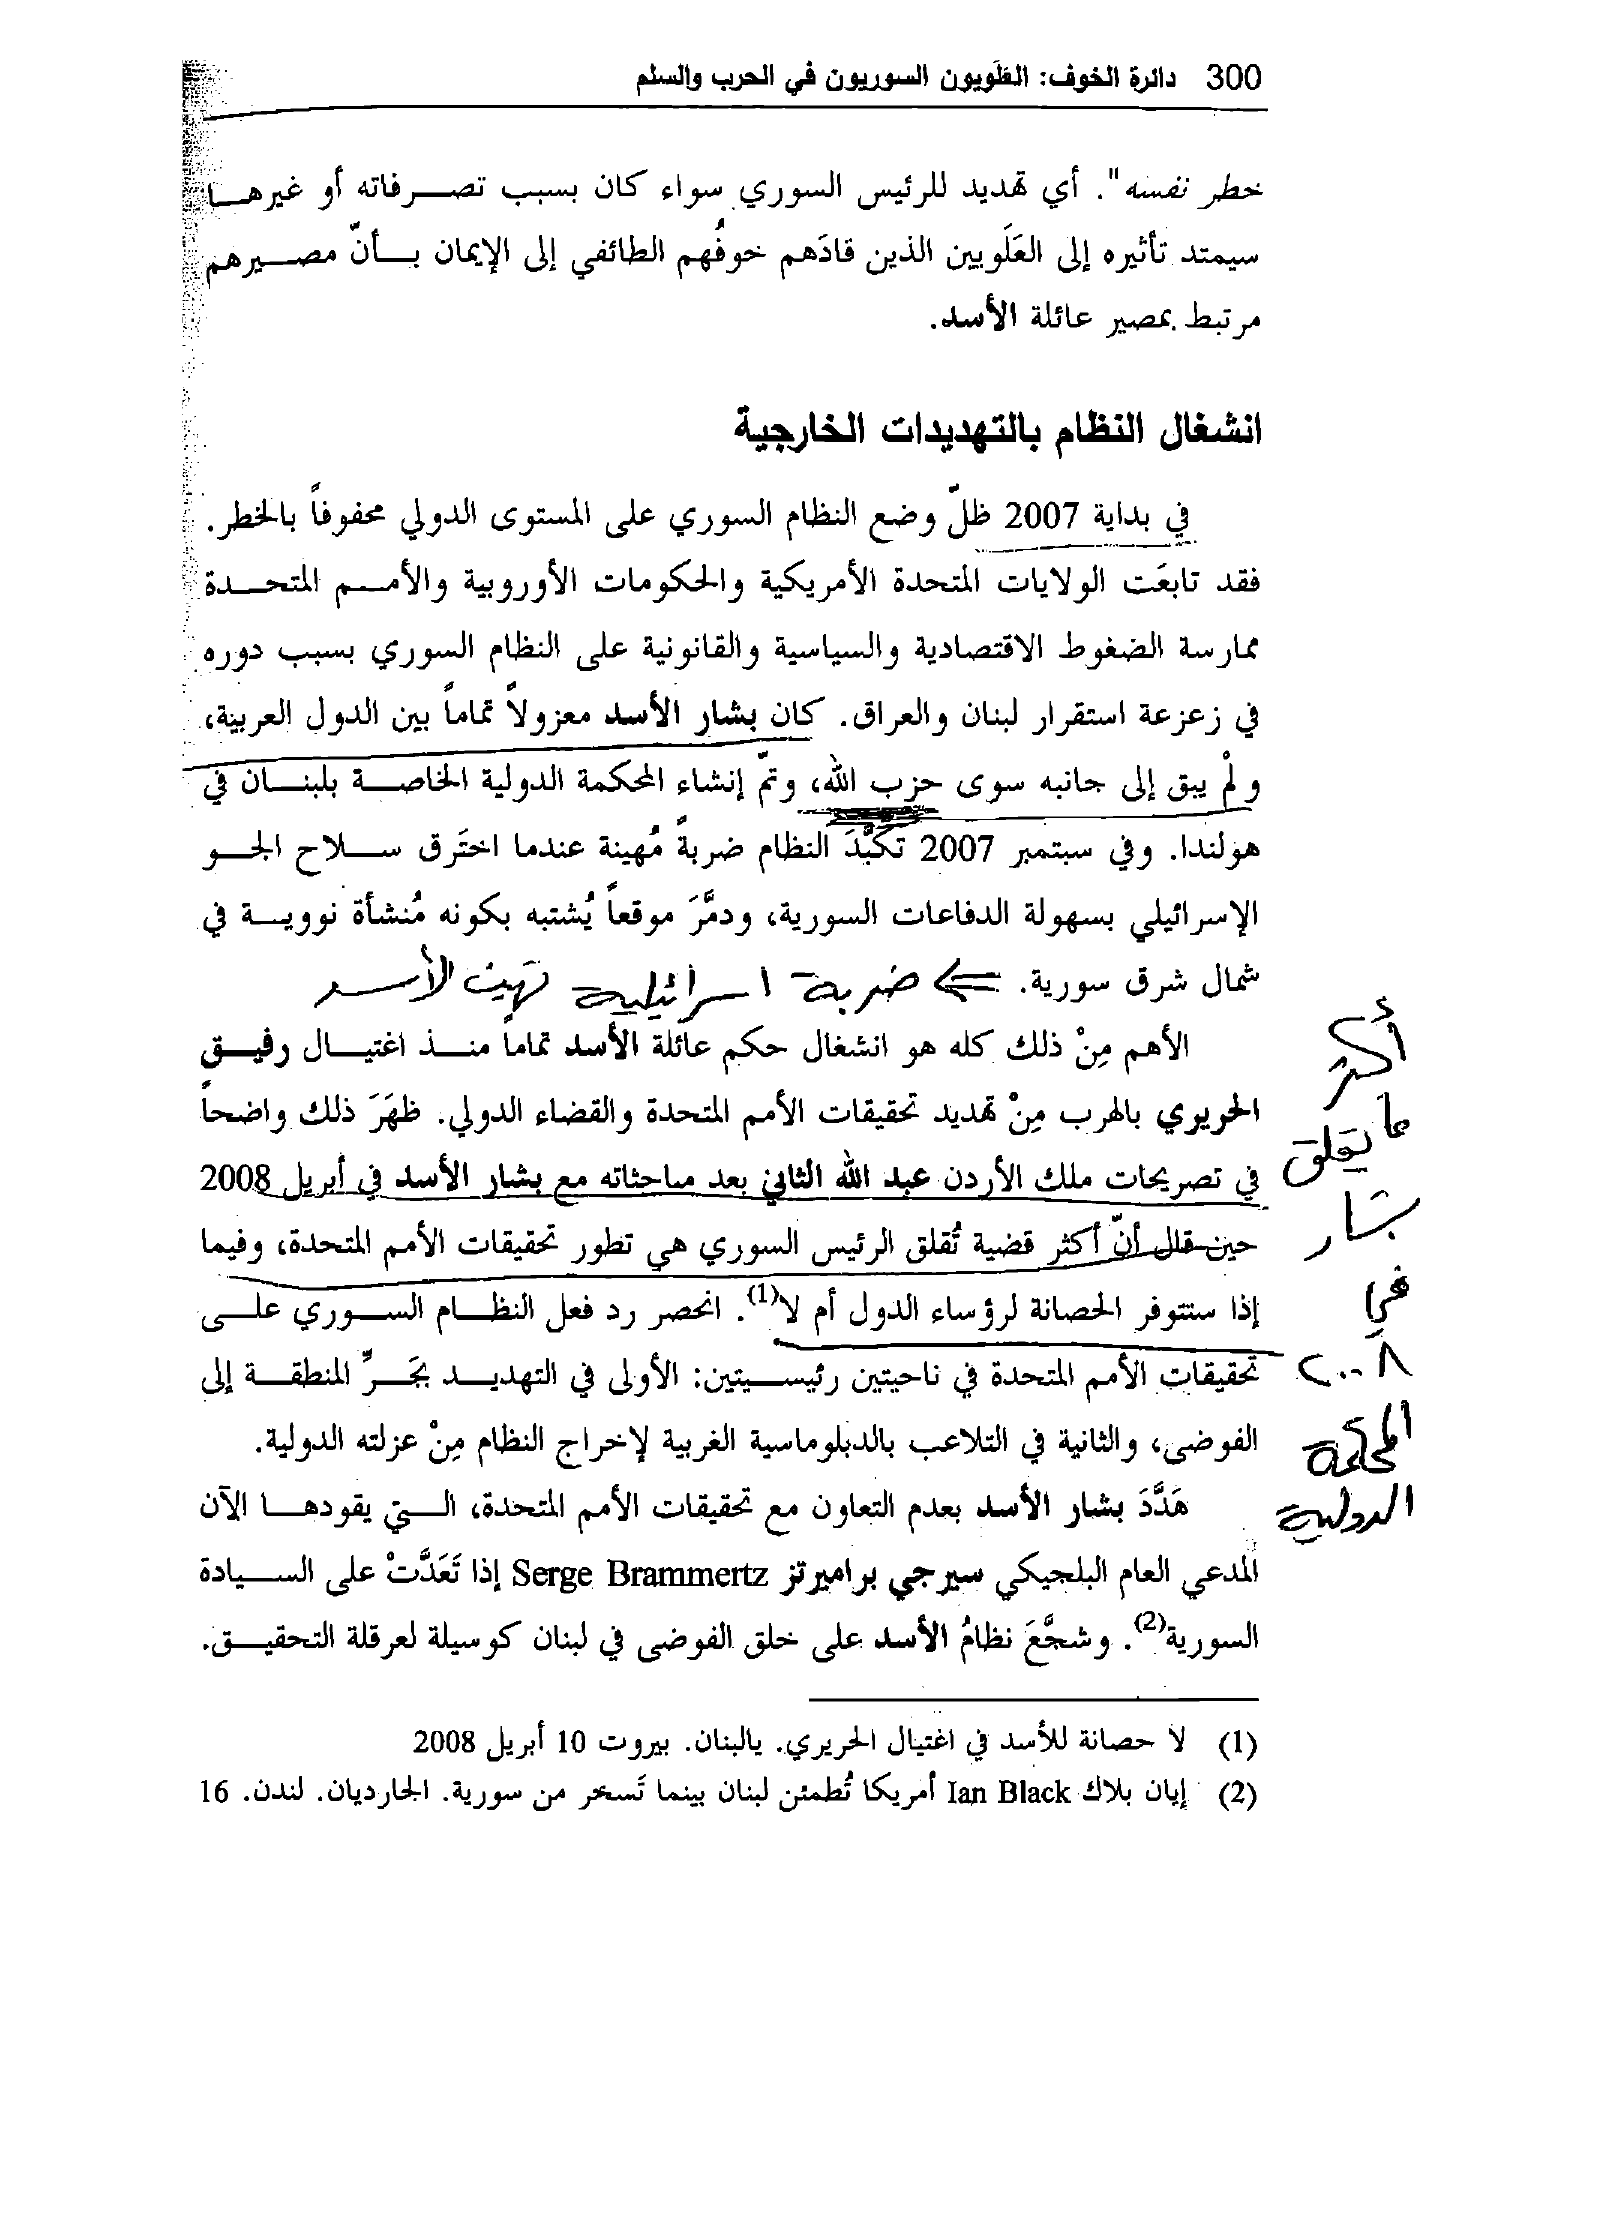 300 دائرة الخوف: العَلَويون السوريون في الحرب والسلم
خطر نفسه". أي تهديد للرئيس السوري سواء كان بسبب تصرفاته أو غيرها
سيمتد تأثيره إلى العَلَويين الذين قادَهم خوفُهم الطائفي إلى الإيمان بأنّ مصيرهم
مرتبط بمصير عائلة الأسد.
انشغال النظام بالتهديدات الخارجية
في بداية 2007 ظلّ وضع النظام السوري على المستوى الدولي محفوفاً بالخطر.
فقد تابعَت الولايات المتحدة الأمريكية والحكومات الأوروبية والأمم المتحدة
ممارسة الضغوط الاقتصادية والسياسية والقانونية على النظام السوري بسبب دوره
في زعزعة استقرار لبنان والعراق. كان بشار الأسد معزولاً تماماً بين الدول العربية،
ولمْ يبق إلى جانبه سوى حزب الله، وتمّ إنشاء المحكمة الدولية الخاصة بلبنان في
هولندا. وفي سبتمبر 2007 تكبَّدَ النظام ضربةً مُهينة عندما اختَرق سلاح الجو
الإسرائيلي بسهولة الدفاعات السورية، ودمَّرَ موقعاً يُشتبه بكونه مُنشأة نووية في
شمال شرق سورية. <= ضربة اسرائيلية تهين الأسد
الأهم مِنْ ذلك كله هو انشغال حكم عائلة الأسد تماماً منذ اغتيال رفيق
الحريري بالهرب مِنْ تهديد تحقيقات الأمم المتحدة والقضاء الدولي. ظهَرَ ذلك واضحاً
في تصريحات ملك الأردن عبد الله الثاني بعد مباحثاته مع بشار الأسد في أبريل 2008
حين قال أنّ أكثر قضية تُقلق الرئيس السوري هي تطور تحقيقات الأمم المتحدة، وفيما
إذا ستتوفر الحصانة لرؤساء الدول أم لا(1). انحصر رد فعل النظام السوري على
تحقيقات الأمم المتحدة في ناحيتين رئيسيتين: الأولى في التهديد بجَرِّ المنطقة إلى
الفوضى، والثانية في التلاعب بالدبلوماسية الغربية لإخراج النظام مِنْ عزلته الدولية.
هَدَّدَ بشار الأسد بعدم التعاون مع تحقيقات الأمم المتحدة، التي يقودها الآن
المدعي العام البلجيكي سيرجي براميرتز Serge Brammertz إذا تَعَدَّتْ على السيادة
السورية(2). وشجَّعَ نظامُ الأسد على خلق الفوضى في لبنان كوسيلة لعرقلة التحقيق.
أكثر
ما يقلق
بشار
في
٢٠٠٨
المحكمة
الدولية
(1) لا حصانة للأسد في اغتيال الحريري. يالبنان. بيروت 10 أبريل 2008
(2) إيان بلاك Ian Black أمريكا تُطمئن لبنان بينما تَسخر من سورية. الجارديان. لندن. 16